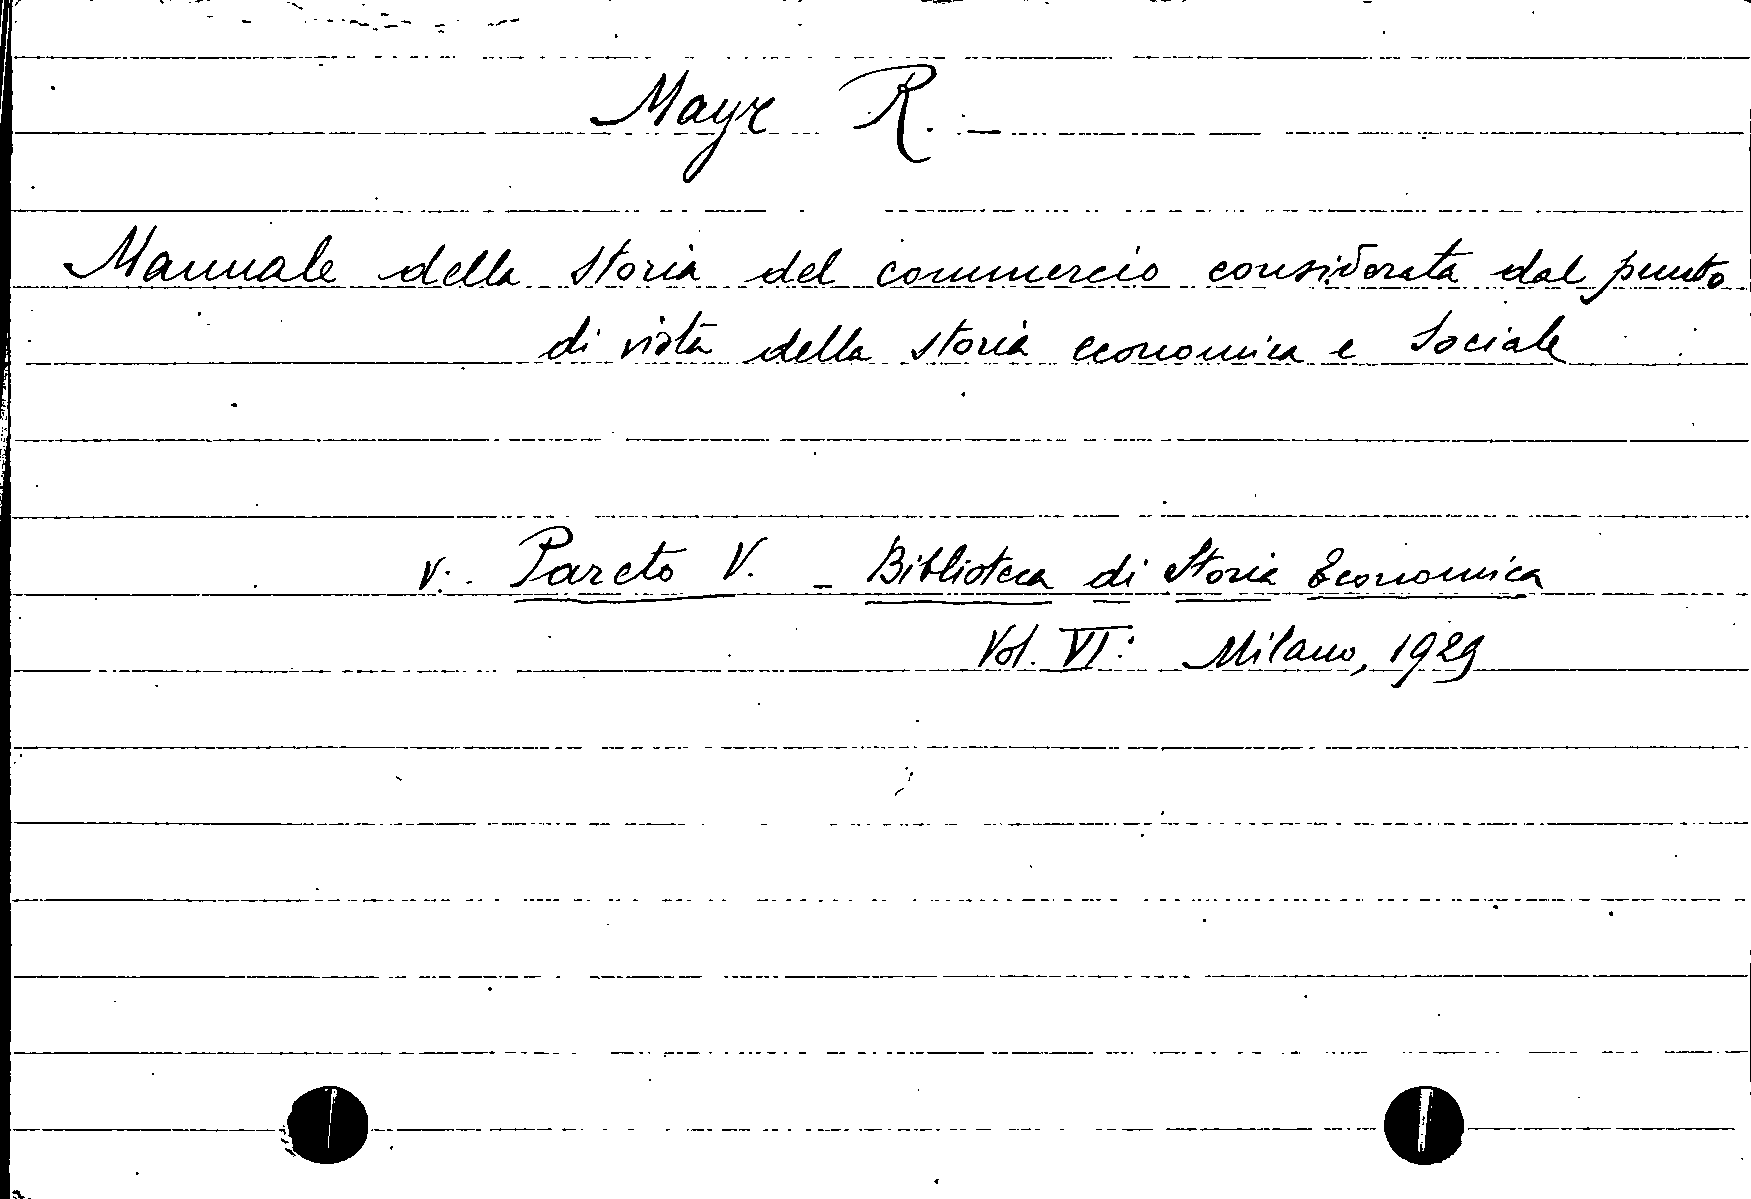 Mayr R. -
Manuale della storia del commercio considerata dal punto
di vista della storia economica e sociale
v. Pareto V. - Biblioteca di Storia Economica
Vol. VI: Milano, 1929